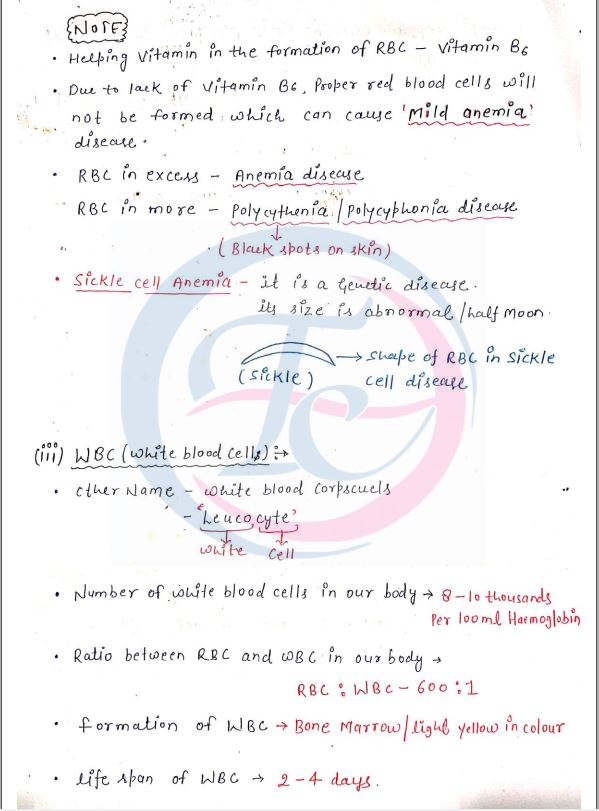 NOTE
• Helping Vitamin in the formation of RBC - Vitamin B6
• Due to lack of Vitamin B6, Proper red blood cells will
not be formed which can cause 'Mild anemia'
disease.
• RBC in excess - Anemia disease
RBC in more - Polycythenia / polycyphonia disease
(Black spots on skin)
• Sickle cell Anemia - it is a Genetic disease.
its size is abnormal/half Moon.
(Sickle) → Shape of RBC in Sickle
cell disease
(iii) WBC (White blood Cells) :→
• Other Name - White blood Corpscuels
- 'Leucocyte'
White Cell
• Number of white blood cells in our body → 8-10 thousands
Per 100ml Haemoglobin
• Ratio between RBC and WBC in our body →
RBC : WBC - 600 : 1
• formation of WBC → Bone Marrow/light yellow in colour
• life span of WBC → 2-4 days.